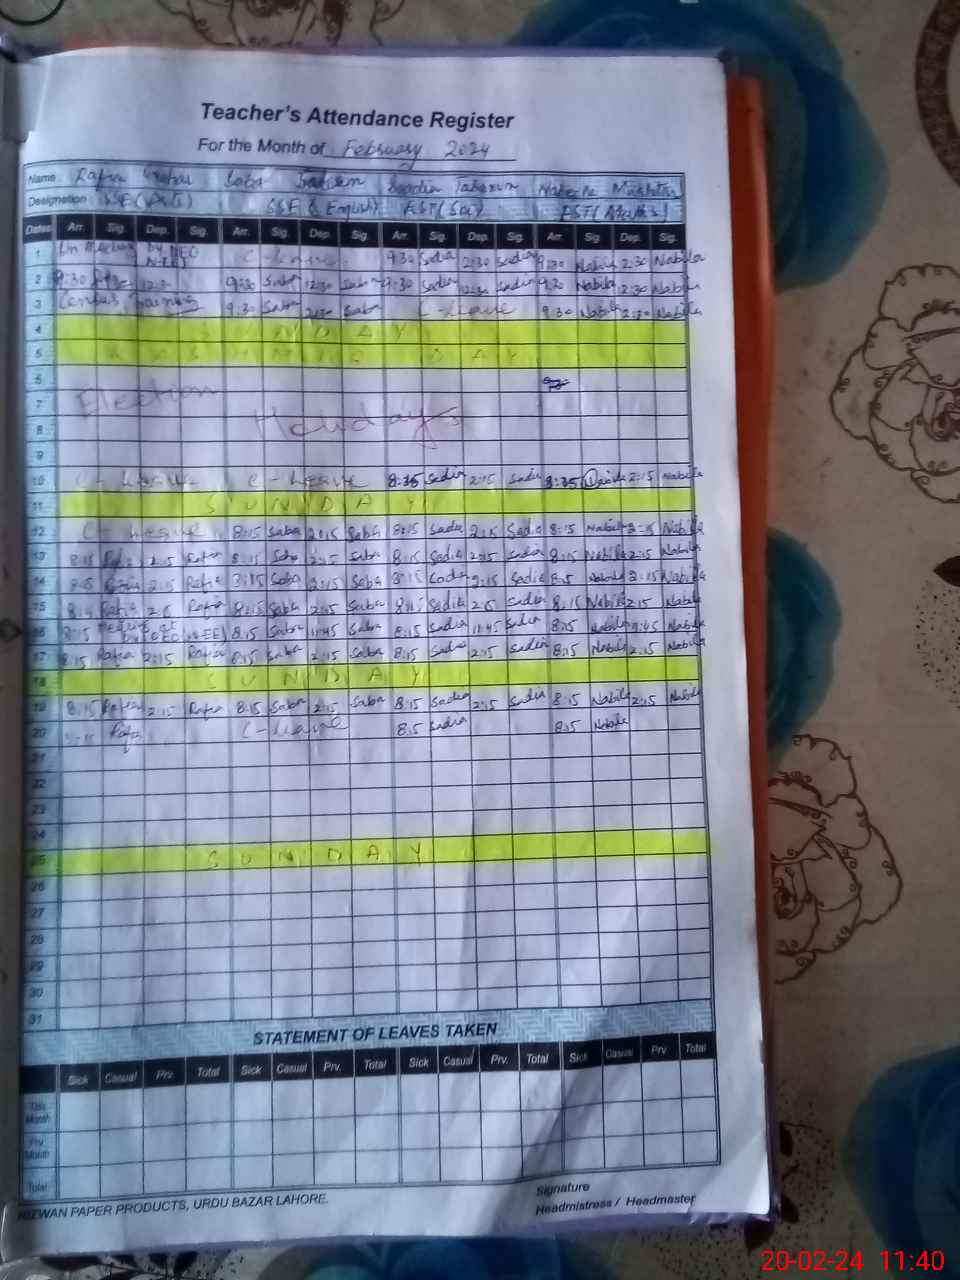 Teacher's Attendance Register
For the Month of February 2024
Name Rafia Saba Sadia Tabasum Nabeela
Designation SSE SSE (English) EST (Sci) EST (Maths)
Dates Arr. Sig. Dep. Sig. Arr. Sig. Dep. Sig. Arr. Sig. Dep. Sig. Arr. Sig. Dep. Sig.
1 On Meeting by DEO C-Leave 9:30 Sadia 2:30 Sadia 9:30 Nabila 2:30 Nabila
2 9:30 12:30 9:30 Saba 12:30 Saba 9:30 Sadia 12:30 Sadia 9:30 Nabila 12:30 Nabila
3 Census Training 9:30 Saba 2:30 Saba C-Leave 9:30 Nabila 2:30 Nabila
4 S U N D A Y
5 K A S H M I R D A Y
6
7 Election
8 Holidays
9
10 C-Leave C-Leave 8:35 Sadia 2:15 Sadia 8:35 2:15 Nabila
11 S U N D A Y
12 C-Leave 8:15 Saba 2:15 Saba 8:15 Sadia 2:15 Sadia 8:15 Nabila 2:15 Nabila
13 8:15 Rafia 2:15 Rafia 8:15 Saba 2:15 Saba 8:15 Sadia 2:15 Sadia 8:15 Nabila 2:15 Nabila
14 8:15 Rafia 2:15 Rafia 8:15 Saba 2:15 Saba 8:15 Sadia 2:15 Sadia 8:15 Nabila 2:15 Nabila
15 8:15 Rafia 2:15 Rafia 8:15 Saba 2:15 Saba 8:15 Sadia 2:15 Sadia 8:15 Nabila 2:15 Nabila
16 8:15 Meeting at DEO (W-EE) 8:15 Saba 11:45 Saba 8:15 Sadia 11:45 Sadia 8:15 Nabila 11:45 Nabila
17 8:15 Rafia 2:15 Rafia 8:15 Saba 2:15 Saba 8:15 Sadia 2:15 Sadia 8:15 Nabila 2:15 Nabila
18 S U N D A Y
19 8:15 Rafia 2:15 Rafia 8:15 Saba 2:15 Saba 8:15 Sadia 2:15 Sadia 8:15 Nabila 2:15 Nabila
20 8:15 Rafia C-Leave 8:15 Sadia 8:15 Nabila
21
22
23
24
25 S U N D A Y
26
27
28
29
30
31
STATEMENT OF LEAVES TAKEN
Sick Casual Prv. Total Sick Casual Prv. Total Sick Casual Prv. Total Sick Casual Prv Total
This Month
Prv. Month
Total
RIZWAN PAPER PRODUCTS, URDU BAZAR LAHORE.
Signature
Headmistress / Headmaster
20-02-24 11:40